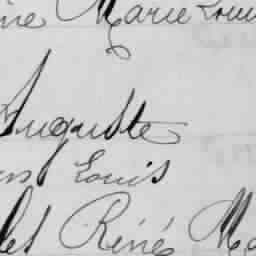 ine Marie Loui
Auguste
ens Louis
les Réné Ma